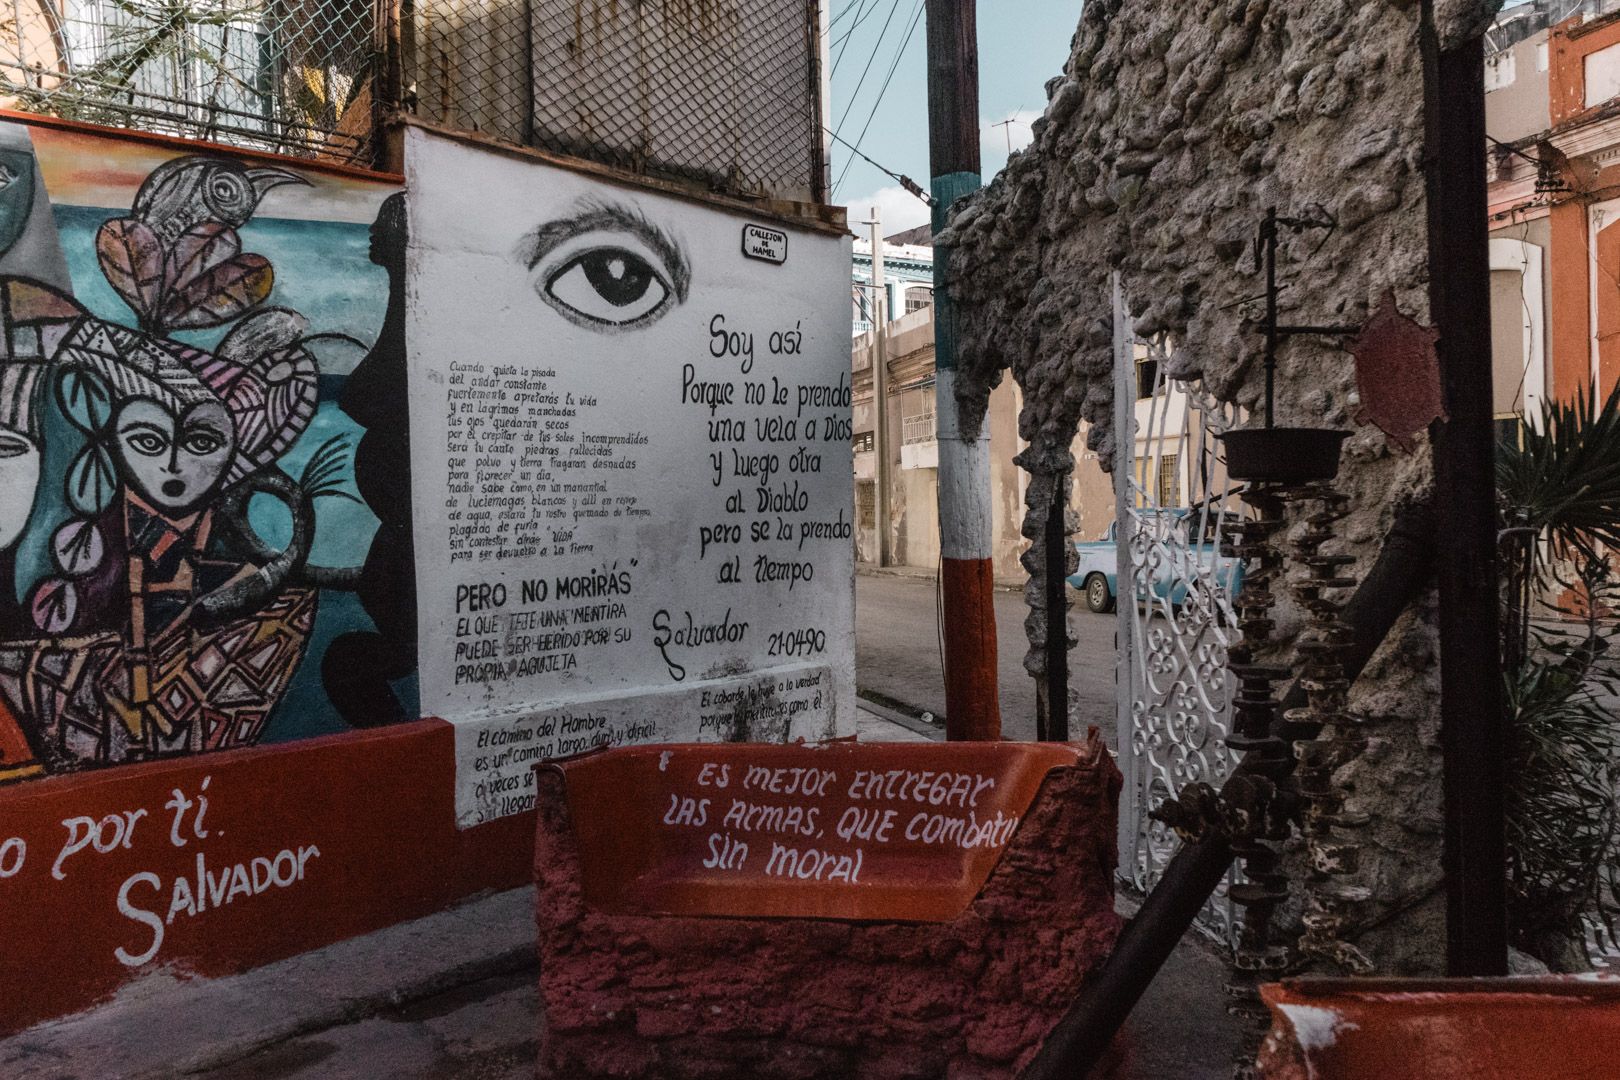 CALLEJON
DE
HAMEL
Cuando quieta la pisada
del andar constante
fuertemente apretarás tu vida
y en lágrimas manchadas
tus ojos quedarán secos
por el crepitar de tus soles incomprendidos
será tu canto piedras fallecidas
que polvo y tierra tragaran desnudas
para florecer un día,
nadie sabe como, en un manantial
de luciernagas blancas y allí en
de agua, estará tu rostro quemado de tiempo,
plagado de furia
sin contestar atrás "VIDA"
para ser devuelto a la tierra
PERO NO MORIRÁS"
EL QUE TEJE UNA MENTIRA
PUEDE SER HERIDO POR SU
PROPIA AGUJETA
Soy así
Porque no le prendo
una vela a Dios
y luego otra
al Diablo
pero se la prendo
al tiempo
Salvador 21-04-90
El camino del Hombre
es un camino largo, duro y dificil
a veces se
sin llegar
El cobarde le huye a la verdad
porque como él
o por tí.
Salvador
ES MEJOR ENTREGAR
LAS ARMAS, QUE COMBATIR
SIN MORAL